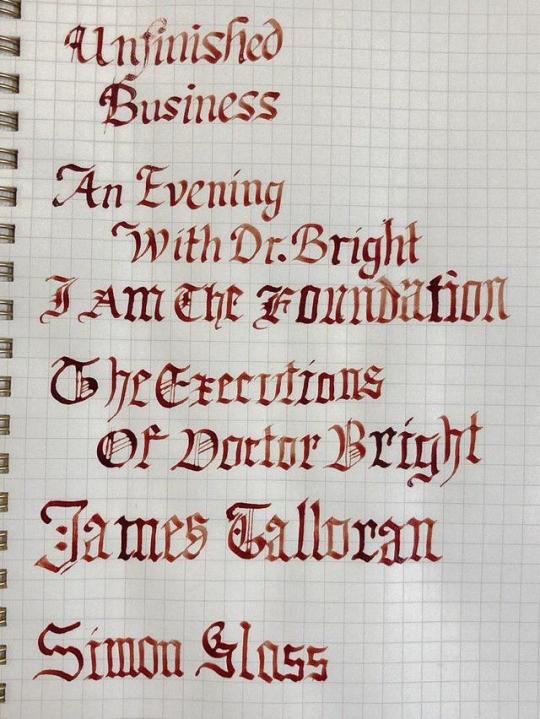 Unfinished
Business
An Evening
With Dr. Bright
I Am The Foundation
The Executions
Of Doctor Bright
James Talloran
Simon Glass